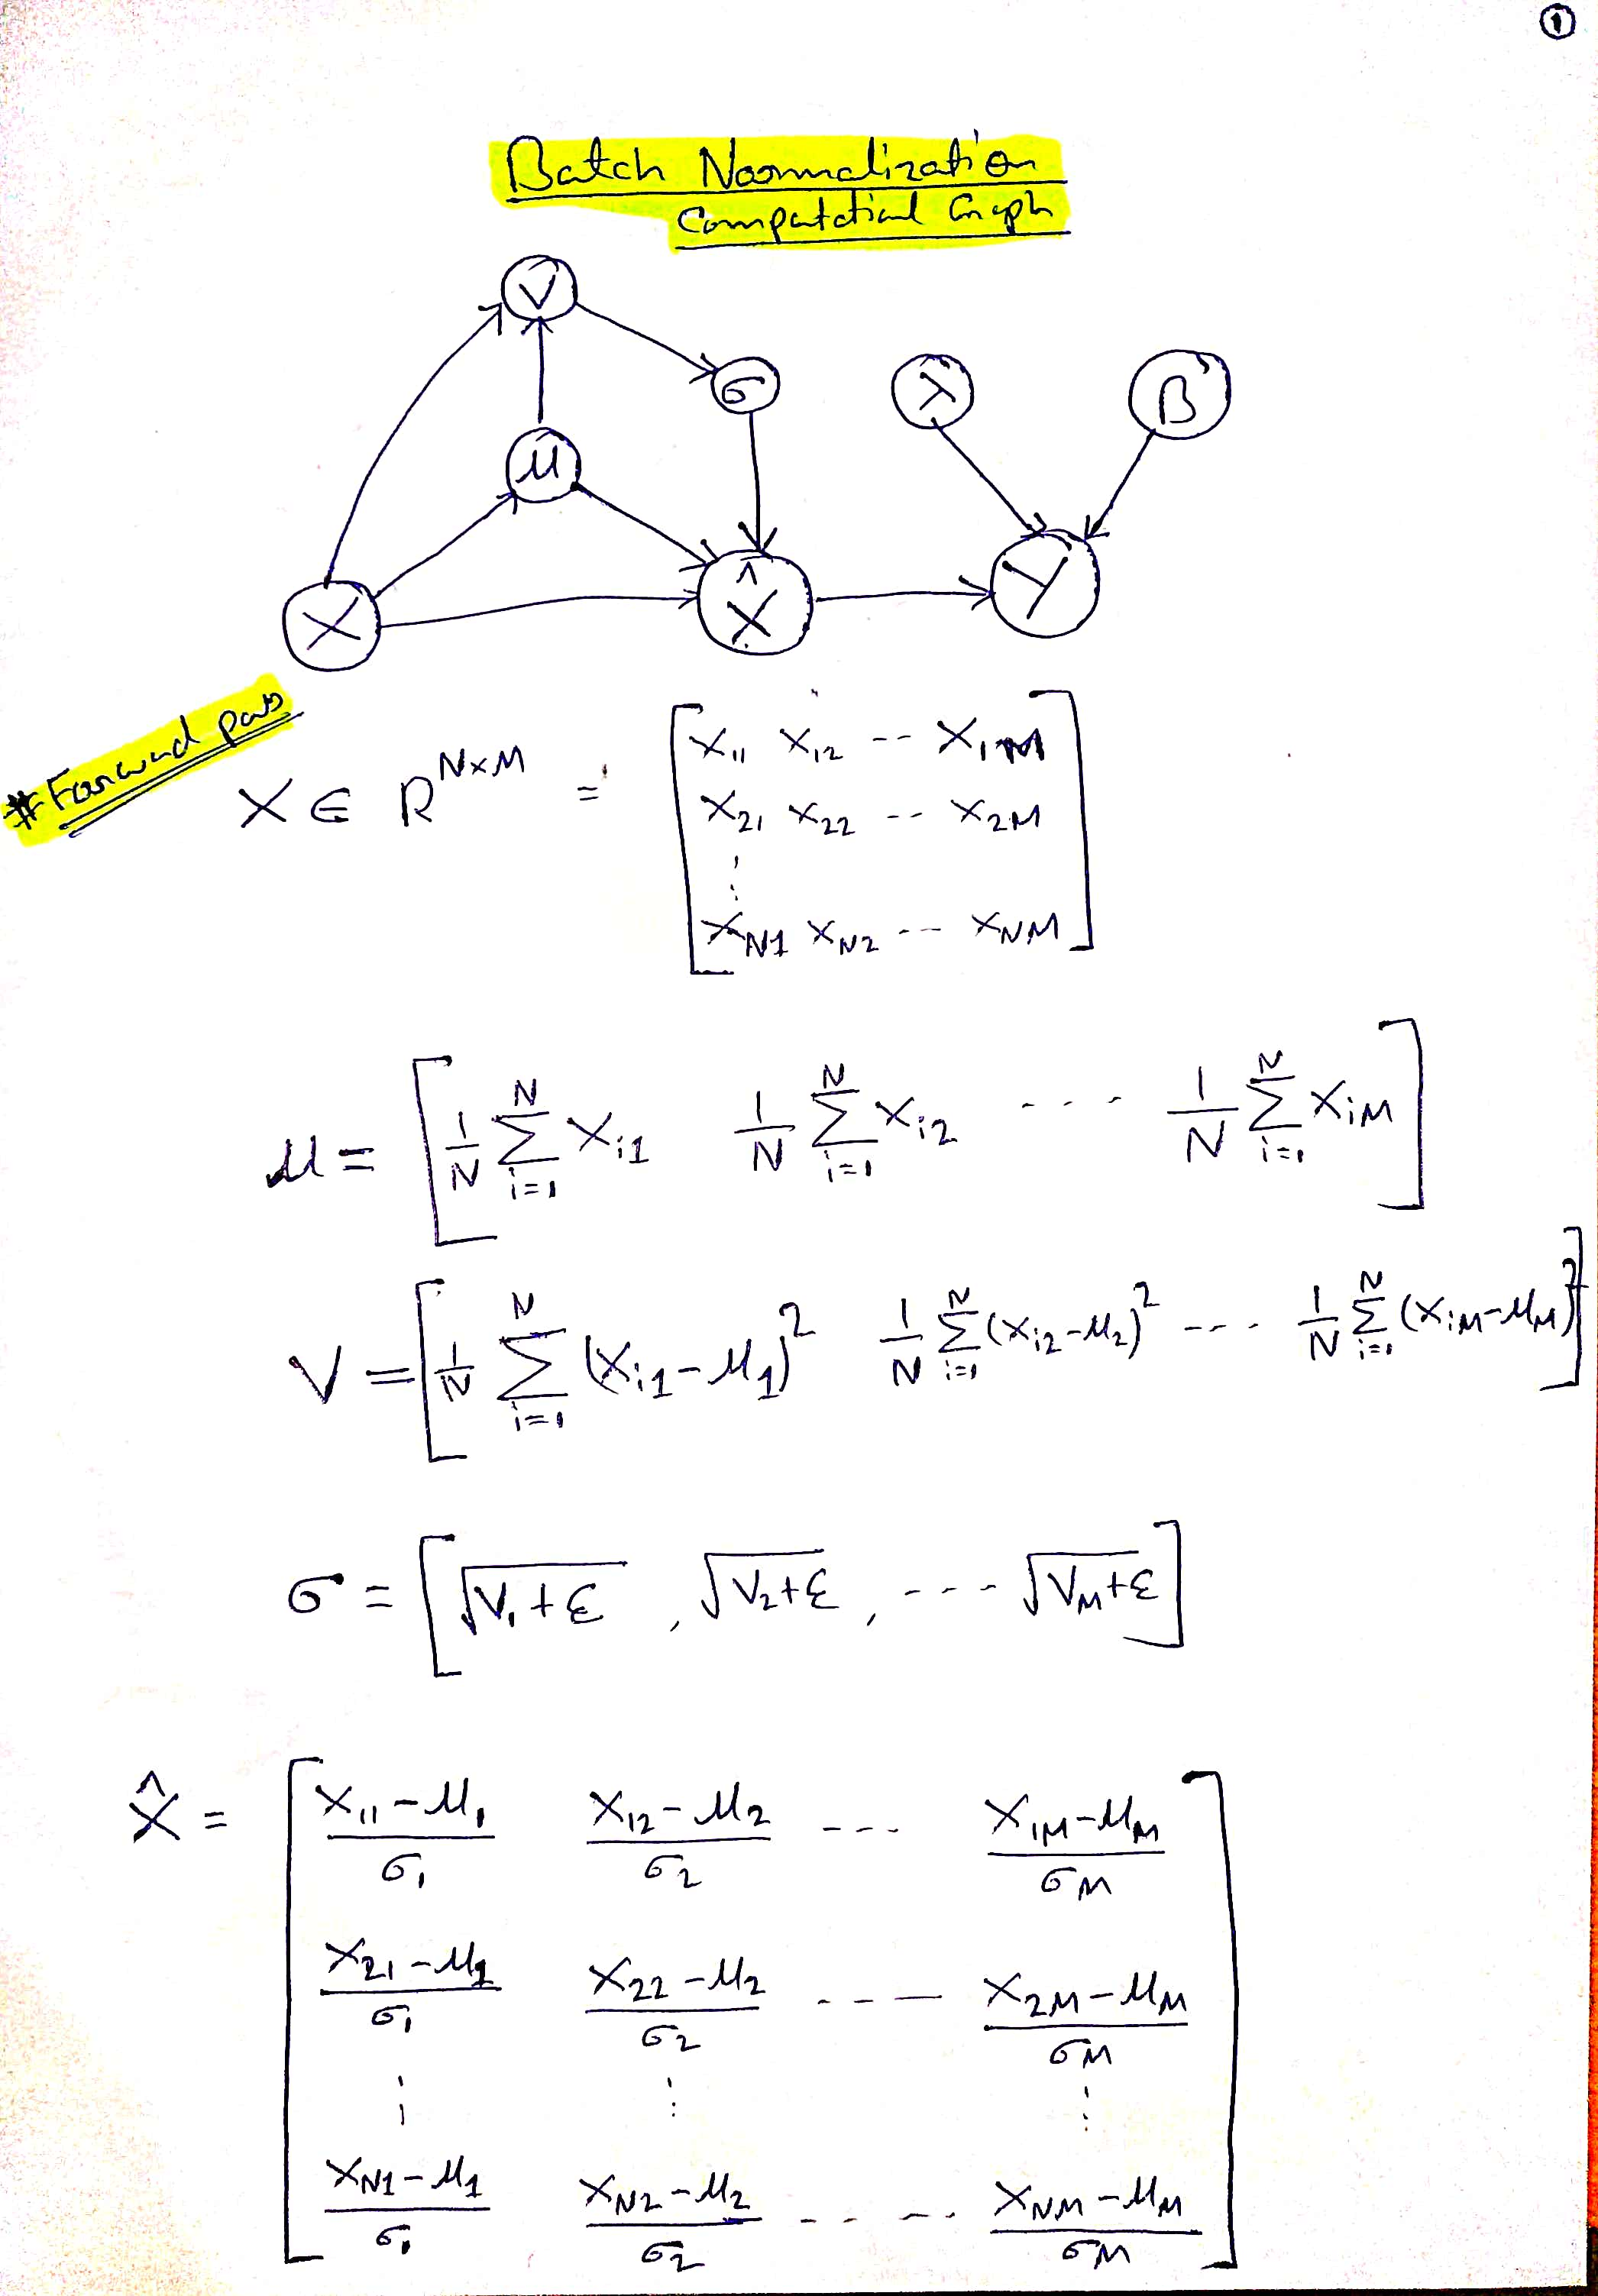 ①
Batch Normalization
Computational Graph
V
σ
γ
β
μ
X
X̂
Y
# Forward pass
X ∈ R^{N×M} = [ X₁₁ X₁₂ -- X₁M
X₂₁ X₂₂ -- X₂M
⋮
X_{N1} X_{N2} -- X_{NM} ]
μ = [ 1/N Σ_{i=1}^{N} X_{i1} 1/N Σ_{i=1}^{N} X_{i2} --- 1/N Σ_{i=1}^{N} X_{iM} ]
V = [ 1/N Σ_{i=1}^{N} (X_{i1}-μ₁)² 1/N Σ_{i=1}^{N} (X_{i2}-μ₂)² --- 1/N Σ_{i=1}^{N} (X_{iM}-μ_M)² ]
σ = [ √(V₁+ε) , √(V₂+ε) , --- √(V_M+ε) ]
X̂ = [ (X₁₁-μ₁)/σ₁ (X₁₂-μ₂)/σ₂ --- (X_{1M}-μ_M)/σ_M
(X₂₁-μ₁)/σ₁ (X₂₂-μ₂)/σ₂ --- (X_{2M}-μ_M)/σ_M
⋮ ⋮ ⋮
(X_{N1}-μ₁)/σ₁ (X_{N2}-μ₂)/σ₂ ---- (X_{NM}-μ_M)/σ_M ]